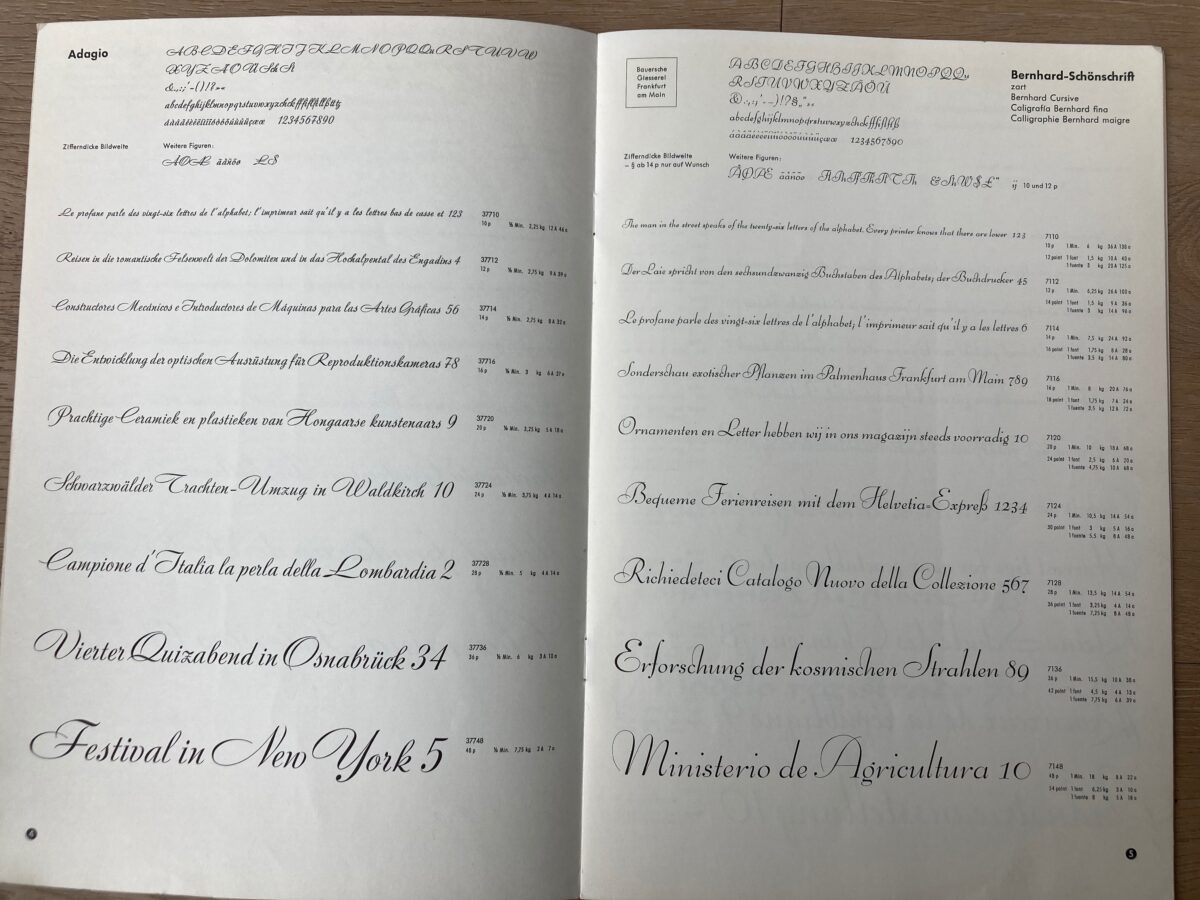 Adagio
ABCDEFGHIJKLMNOPQQuRSTUVW
XYZÄÖÜSchSt
&.,:;'-()!?»«
1234567890
Zifferndicke Bildweite
Weitere Figuren:
Le profane parle des vingt-six lettres de l'alphabet; l'imprimeur sait qu'il y a les lettres bas de casse et 123
37710
10 p ½ Min. 2,25 kg 12 A 46 a
Reisen in die romantische Felsenwelt der Dolomiten und in das Hochalpental des Engadins 4
37712
12 p ½ Min. 2,75 kg 9 A 39 a
Constructores Mecánicos e Introductores de Máquinas para las Artes Gráficas 56
37714
14 p ½ Min. 2,75 kg 8 A 32 a
Die Entwicklung der optischen Ausrüstung für Reproduktionskameras 78
37716
16 p ½ Min. 3 kg 6 A 27 a
Prachtige Ceramiek en plastieken van Hongaarse kunstenaars 9
37720
20 p ½ Min. 3,25 kg 5 A 18 a
Schwarzwälder Trachten-Umzug in Waldkirch 10
37724
24 p ½ Min. 3,75 kg 4 A 14 a
Campione d'Italia la perla della Lombardia 2
37728
28 p ½ Min. 5 kg 4 A 14 a
Vierter Quizabend in Osnabrück 34
37736
36 p ½ Min. 6 kg 3 A 10 a
Festival in New York 5
37748
48 p ½ Min. 7,75 kg 2 A 7 a
4
Bauersche
Giesserei
Frankfurt
am Main
RSTUVWXYZÄÖÜ
1234567890
Bernhard-Schönschrift
zart
Bernhard Cursive
Caligrafía Bernhard fina
Calligraphie Bernhard maigre
Zifferndicke Bildweite
– § ab 14 p nur auf Wunsch
Weitere Figuren:
ij 10 und 12 p
The man in the street speaks of the twenty-six letters of the alphabet. Every printer knows that there are lower 123
7110
10 p 1 Min. 6 kg 36 A 138 a
12 point 1 font 1,5 kg 10 A 40 a
1 fuente 5 kg 20 A 125 a
Der Laie spricht von den sechsundzwanzig Buchstaben des Alphabets; der Buchdrucker 45
7112
12 p 1 Min. 6,25 kg 26 A 100 a
14 point 1 font 1,5 kg 9 A 36 a
1 fuente 5 kg 14 A 96 a
Le profane parle des vingt-six lettres de l'alphabet; l'imprimeur sait qu'il y a les lettres 6
7114
14 p 1 Min. 7,5 kg 24 A 92 a
16 point 1 font 1,75 kg 8 A 28 a
1 fuente 5,5 kg 14 A 80 a
Sonderschau exotischer Pflanzen im Palmenhaus Frankfurt am Main 789
7116
16 p 1 Min. 8 kg 20 A 76 a
18 point 1 font 1,75 kg 7 A 24 a
1 fuente 5,5 kg 12 A 72 a
Ornamenten en Letter hebben wij in ons magazijn steeds voorradig 10
7120
20 p 1 Min. 10 kg 18 A 68 a
24 point 1 font 2,5 kg 6 A 20 a
1 fuente 4,75 kg 10 A 68 a
Bequeme Ferienreisen mit dem Helvetia-Expreß 1234
7124
24 p 1 Min. 10,5 kg 14 A 54 a
30 point 1 font 3 kg 5 A 16 a
1 fuente 5,5 kg 8 A 48 a
Richiedeteci Catalogo Nuovo della Collezione 567
7128
28 p 1 Min. 13,5 kg 14 A 54 a
36 point 1 font 3,25 kg 4 A 14 a
1 fuente 7,25 kg 8 A 48 a
Erforschung der kosmischen Strahlen 89
7136
36 p 1 Min. 15,5 kg 10 A 38 a
42 point 1 font 4,5 kg 4 A 13 a
1 fuente 7,75 kg 6 A 39 a
Ministerio de Agricultura 10
7148
48 p 1 Min. 18 kg 8 A 22 a
54 point 1 font 6,25 kg 3 A 10 a
1 fuente 8 kg 5 A 18 a
5